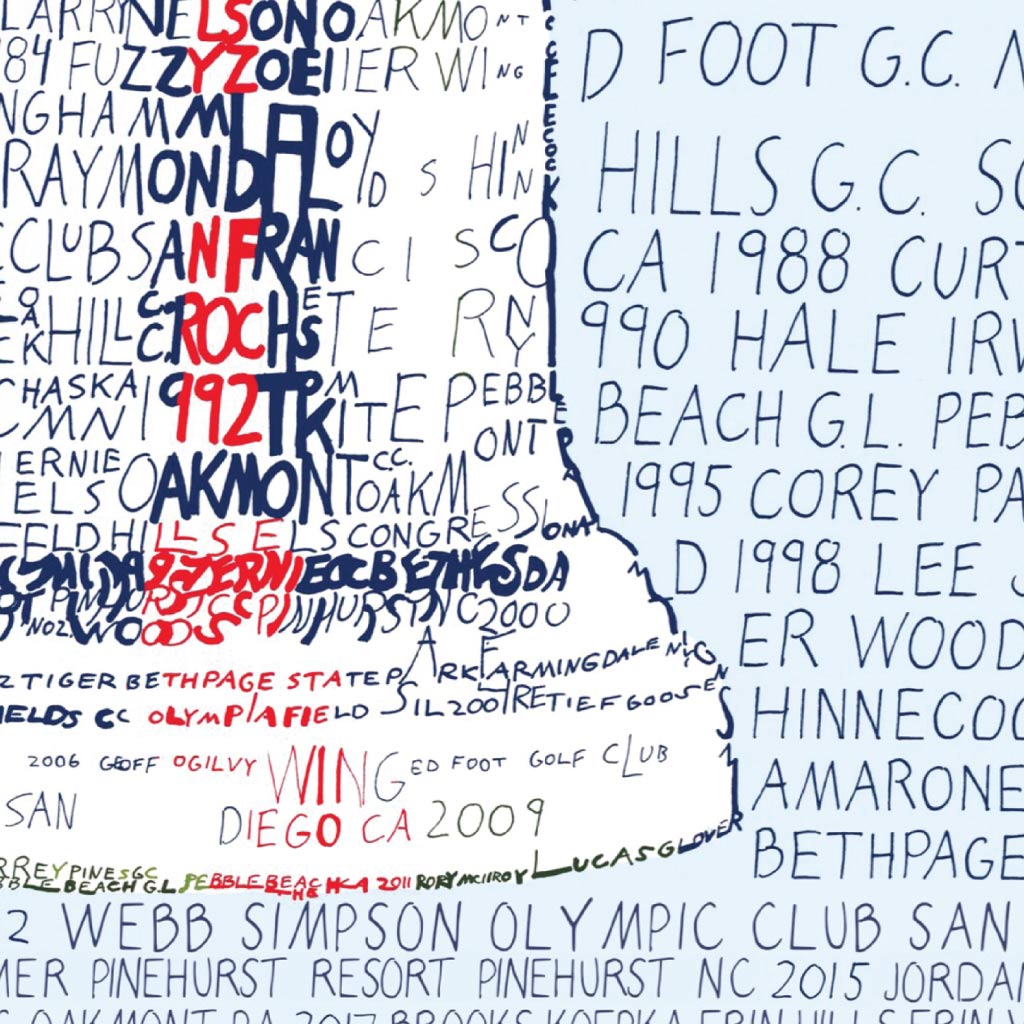 LARRY NELSON OAKMONT
D FOOT G.C.
84 FUZZY ZOELLER WING
NGHAM
RAYMOND FLOYD SHINN
HILLS G.C. SO
CLUB SAN FRANCISCO
CA 1988 CURT
HILL C.C. ROCHESTER NY
990 HALE IRW
CHASKA MN 1992 T KITE PEBBLE
BEACH G.L. PEB
ERNIE ELS OAKMONT CC. OAKMONT
1995 COREY PA
FELD HILLS ELS CONGRESSIONAL
BETHESDA
D 1998 LEE
PINEHURST NC 2000
NO2 WOODS
ER WOOD
2 TIGER BETHPAGE STATE PARK FARMINGDALE NY
IELDS CC OLYMPIA FIELD S IL 2001 RETIEF GOOSEN
HINNECOC
2006 GEOFF OGILVY WINGED FOOT GOLF CLUB
AMARONE
SAN DIEGO CA 2009 LUCAS GLOVER
BETHPAGE
RREY PINES GC
BBLE BEACH G.L. PEBBLE BEACH CA THE 2011 RORY MCILROY
2 WEBB SIMPSON OLYMPIC CLUB SAN
MER PINEHURST RESORT PINEHURST NC 2015 JORDA
OAKMONT PA 2017 BROOKS KOEPKA ERIN HILLS ERIN